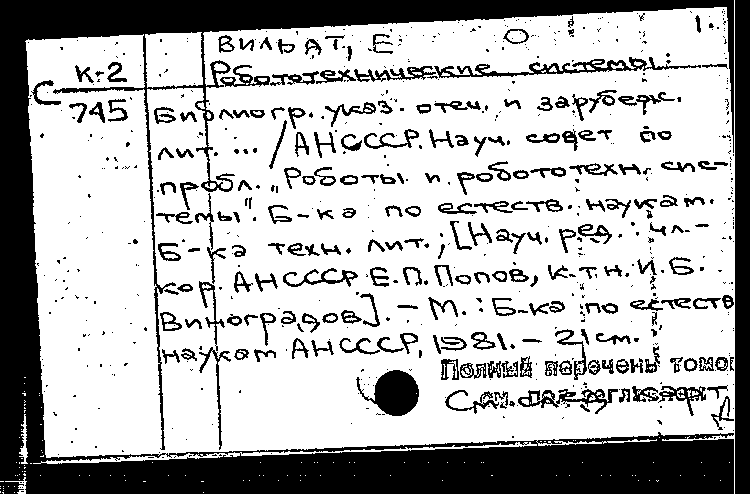 ВИЛЬАТ, Е О 1.
К-2 Робототехнические системы:
С 745 Библиогр. указ. отеч. и зарубеж.
лит. ... / АНСССР. Науч. совет по
пробл. „Роботы и робототехн. сис-
темы". Б-ка по естеств. наукам.
Б-ка техн. лит.; [Науч. ред.: чл.-
кор. АНСССР Е.П. Попов, к.т.н. И.Б.
Виноградов]. – М.: Б-ка по естеств
наукам АНСССР, 1981. – 21 см.
Полный перечень томо
См.